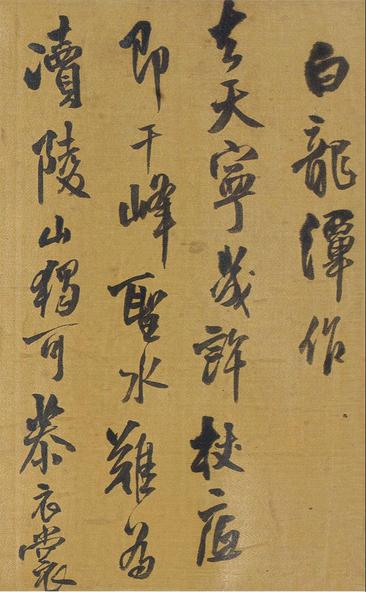 白龍潭作
去天寧幾許杖履
即千峰聖水難為
瀆陵山獨可恭衣裳